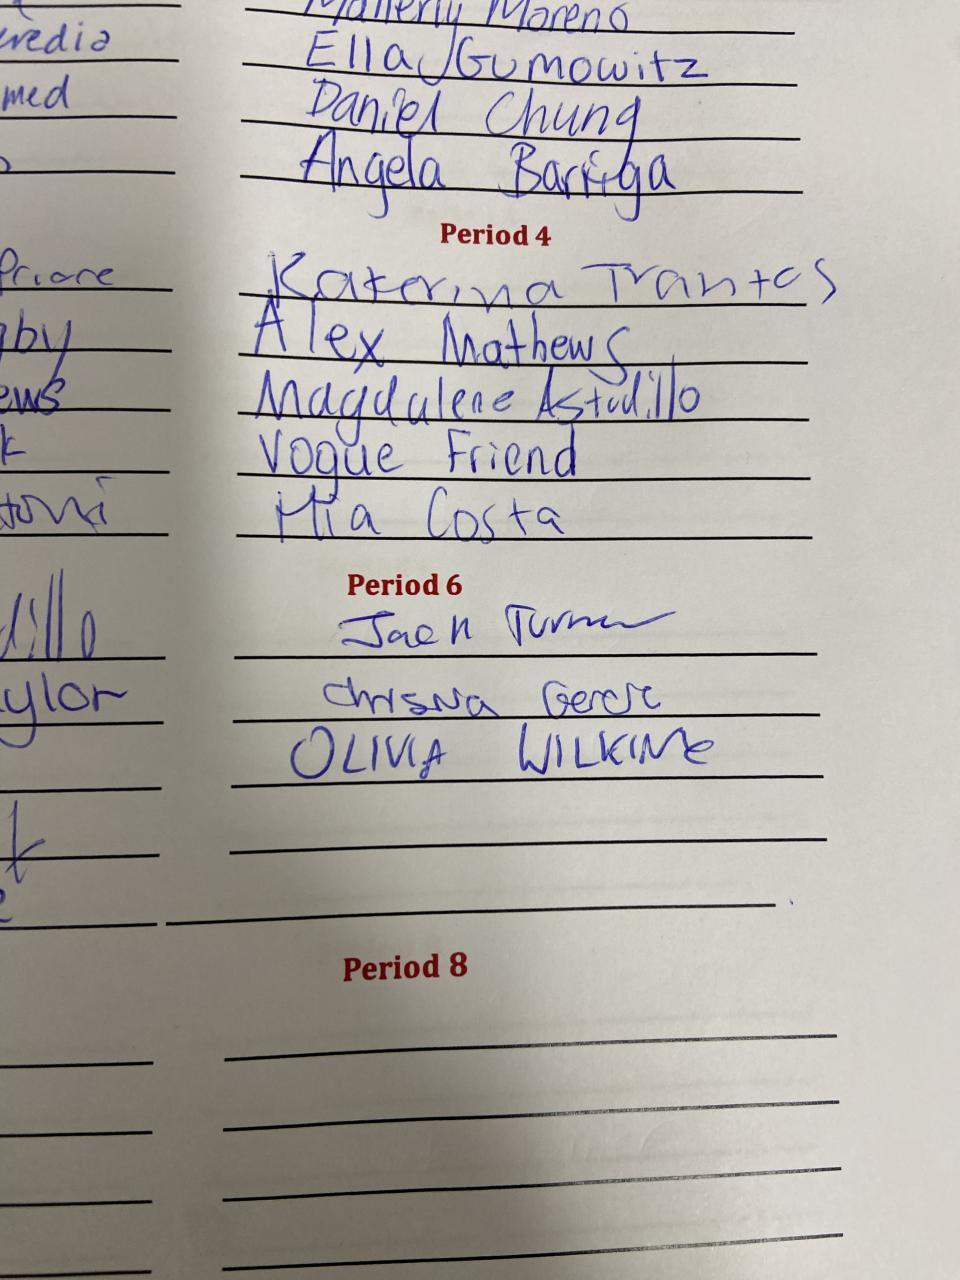 Moreno
redia
Ella Gumowitz
med
Daniel Chung
Angela Barriga
Period 4
Priore
Katerina Trantos
gby
Alex Mathews
ews
Magdalene Astudillo
k
Vogue Friend
toni
Mia Costa
Period 6
dillo
Jack Turner
ylor
OLIVIA WILKINS
Period 8